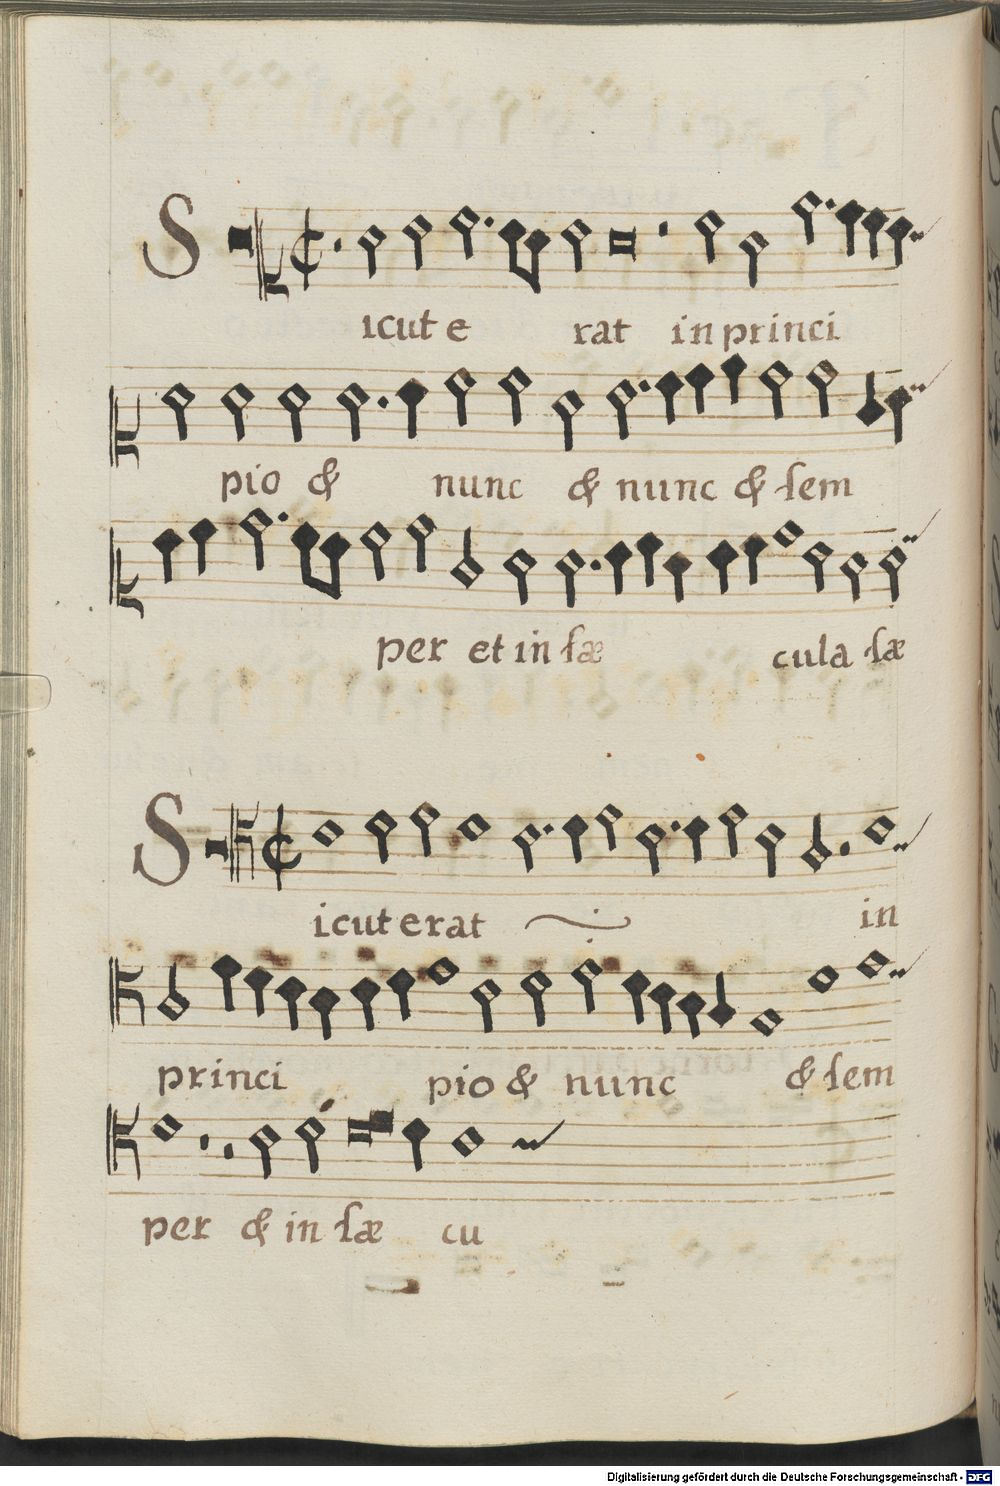 Sicut e rat in princi
pio & nunc & nunc & sem
per et in sæ cula sæ
Sicut erat in
princi pio & nunc & sem
per & in sæ cu
Digitalisierung gefördert durch die Deutsche Forschungsgemeinschaft - DFG